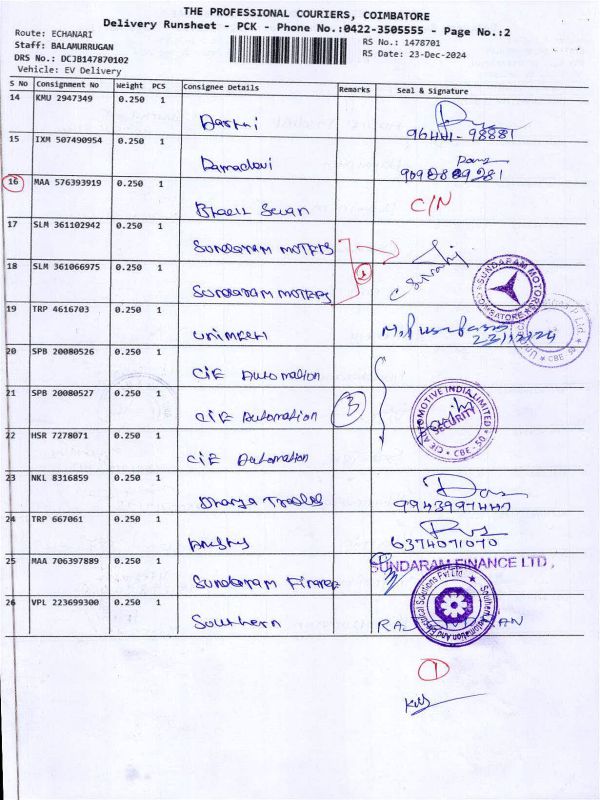 THE PROFESSIONAL COURIERS, COIMBATORE
Delivery Runsheet - PCK - Phone No.:0422-3505555 - Page No.:2
Route: ECHANARI
RS No.: 1478701
Staff: BALAMURRUGAN
RS Date: 23-Dec-2024
DRS No.: DCJB147870102
Vehicle: EV Delivery
S No Consignment No Weight PCS Consignee Details Remarks Seal & Signature
14 KMU 2947349 0.250 1
96441-98881
15 IXM 507490954 0.250 1 Ramadevi
16 MAA 576393919 0.250 1 C/N
17 SLM 361102942 0.250 1 Sundaram Moters
18 SLM 361066975 0.250 1 Sundaram Moters
SUNDARAM MOTORS
COIMBATORE
19 TRP 4616703 0.250 1
23/12/24
CBE - 50
20 SPB 20080526 0.250 1 CIE Automation
21 SPB 20080527 0.250 1 CIE Automation 3
CIE AUTOMOTIVE INDIA LIMITED
SECURITY
CBE - 50
22 HSR 7278071 0.250 1 CIE Automation
23 NKL 8316859 0.250 1
9943997447
24 TRP 667061 0.250 1
6374071070
25 MAA 706397889 0.250 1 Sundaram Finance
SUNDARAM FINANCE LTD,
26 VPL 223699300 0.250 1 Southern
Southern Automation And Electrical Solutions Pvt Ltd
1